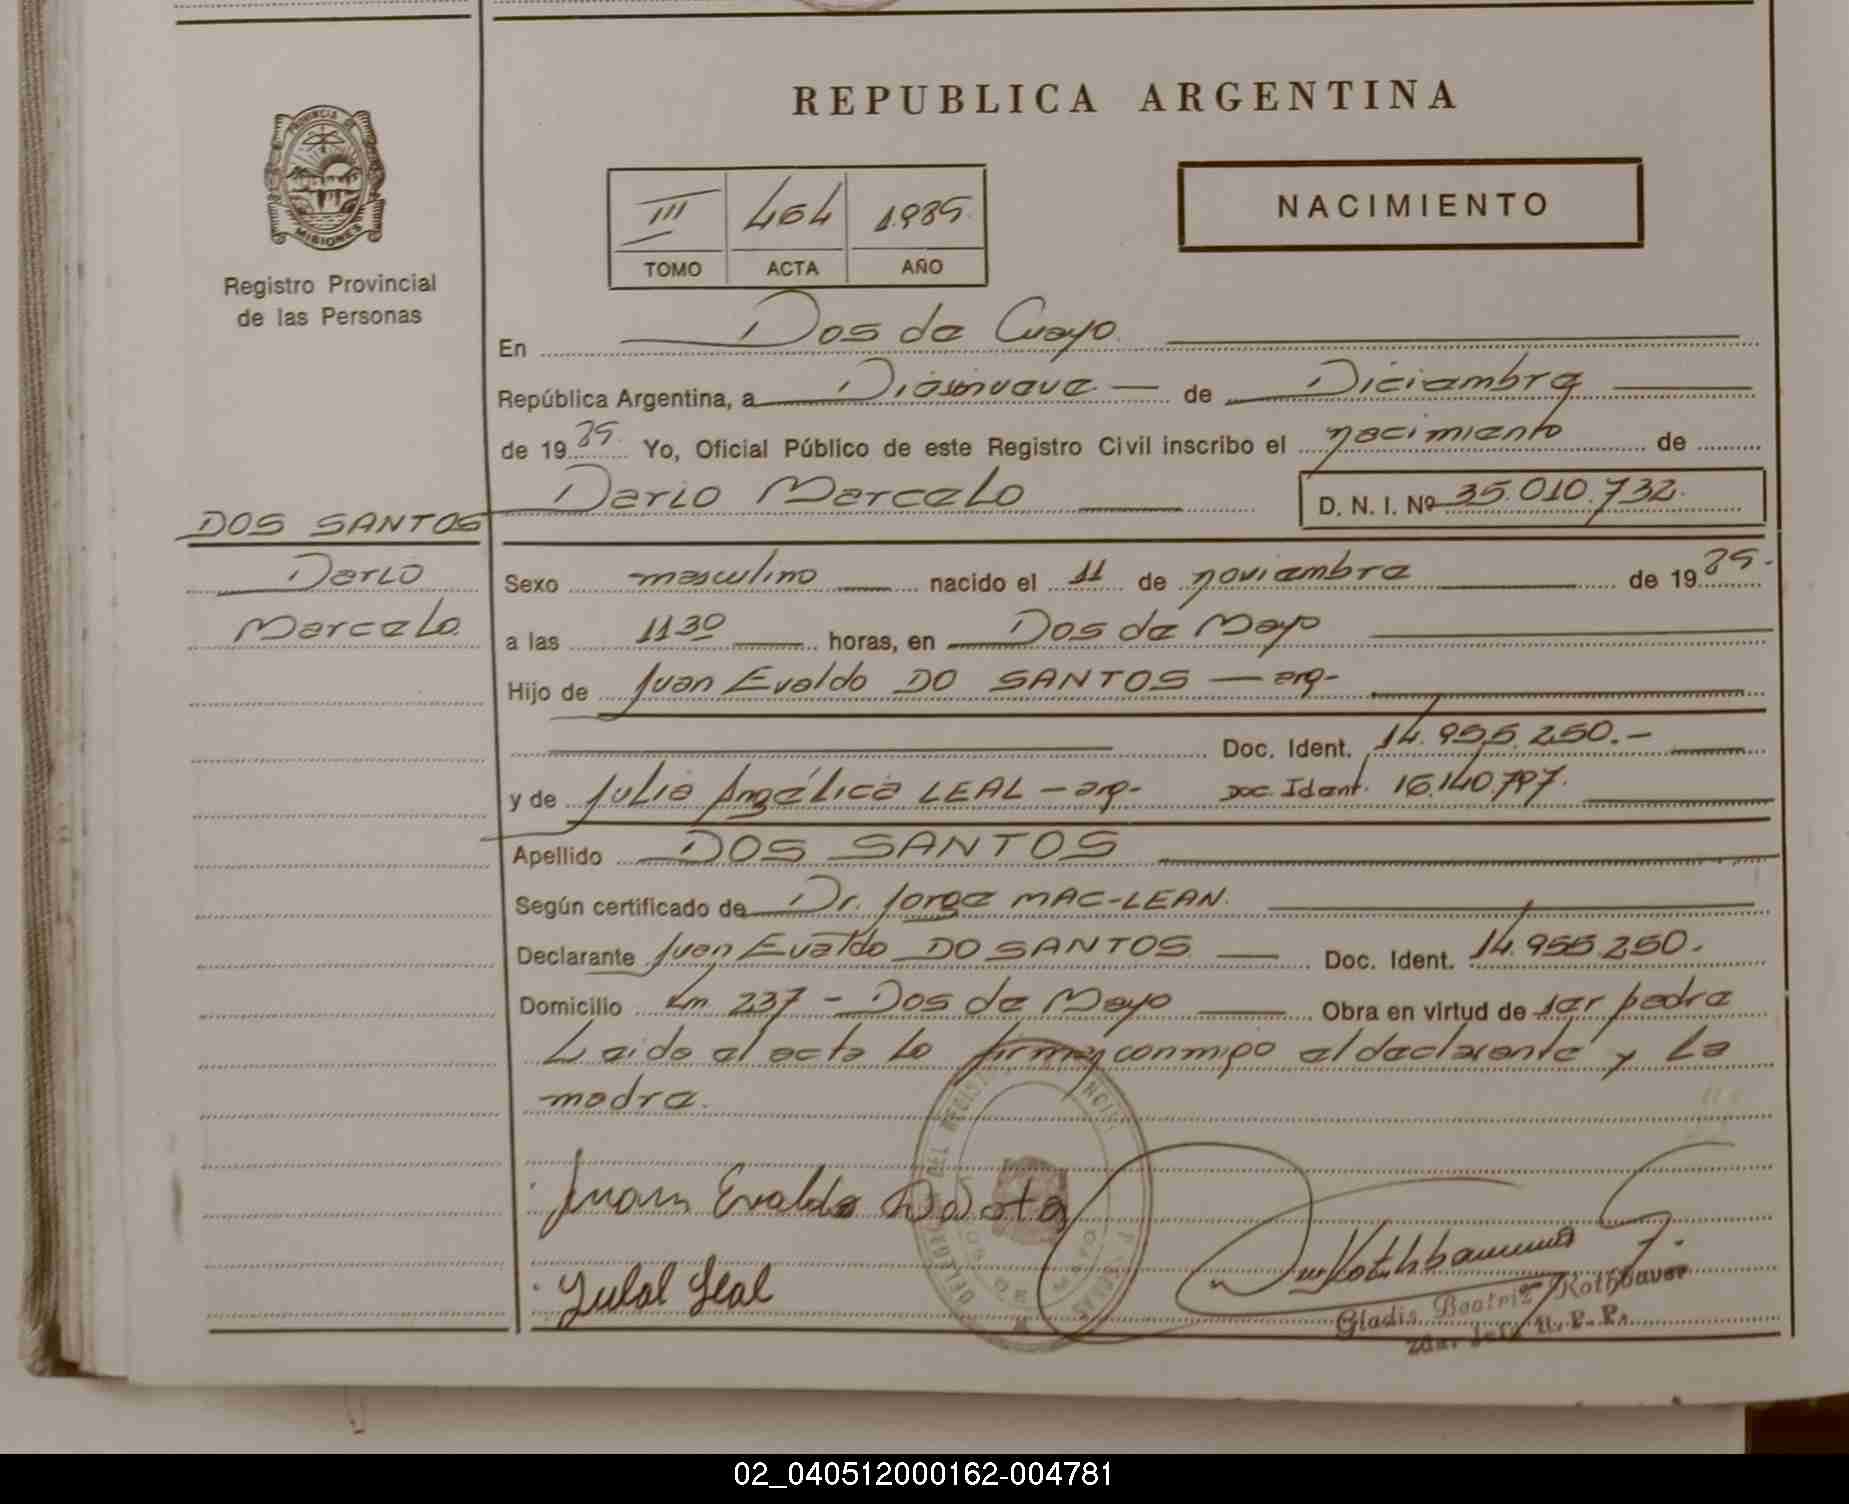 REPUBLICA ARGENTINA
PROVINCIA DE
MISIONES
Registro Provincial
de las Personas
III 464 1.989
TOMO ACTA AÑO
NACIMIENTO
En Dos de Cuayo.
República Argentina, a Diesinueve — de Diciembre
de 1989. Yo, Oficial Público de este Registro Civil inscribo el nacimiento de
Dario Marcelo D. N. I. Nº 35.010.732.
DOS SANTOS
Dario
Marcelo
Sexo masculino nacido el 11 de noviembre de 1989.
a las 11 30 horas, en Dos de Mayo
Hijo de Juan Evaldo DO SANTOS — arg-
Doc. Ident. 14.955.250.-
y de Julia Angélica LEAL - arg- Doc. Ident. 16.140.797.
Apellido DOS SANTOS
Según certificado de Dr. Jorge MAC-LEAN.
Declarante Juan Evaldo DO SANTOS — Doc. Ident. 14.955.250.
Domicilio km 237 - Dos de Mayo Obra en virtud de ser padre
Leido el acta lo firman conmigo el declarante y la
madre.
Juan Evaldo
Leal
Gladis Beatriz Rothbauer
2da. Jefe R.P.P.
02_040512000162-004781